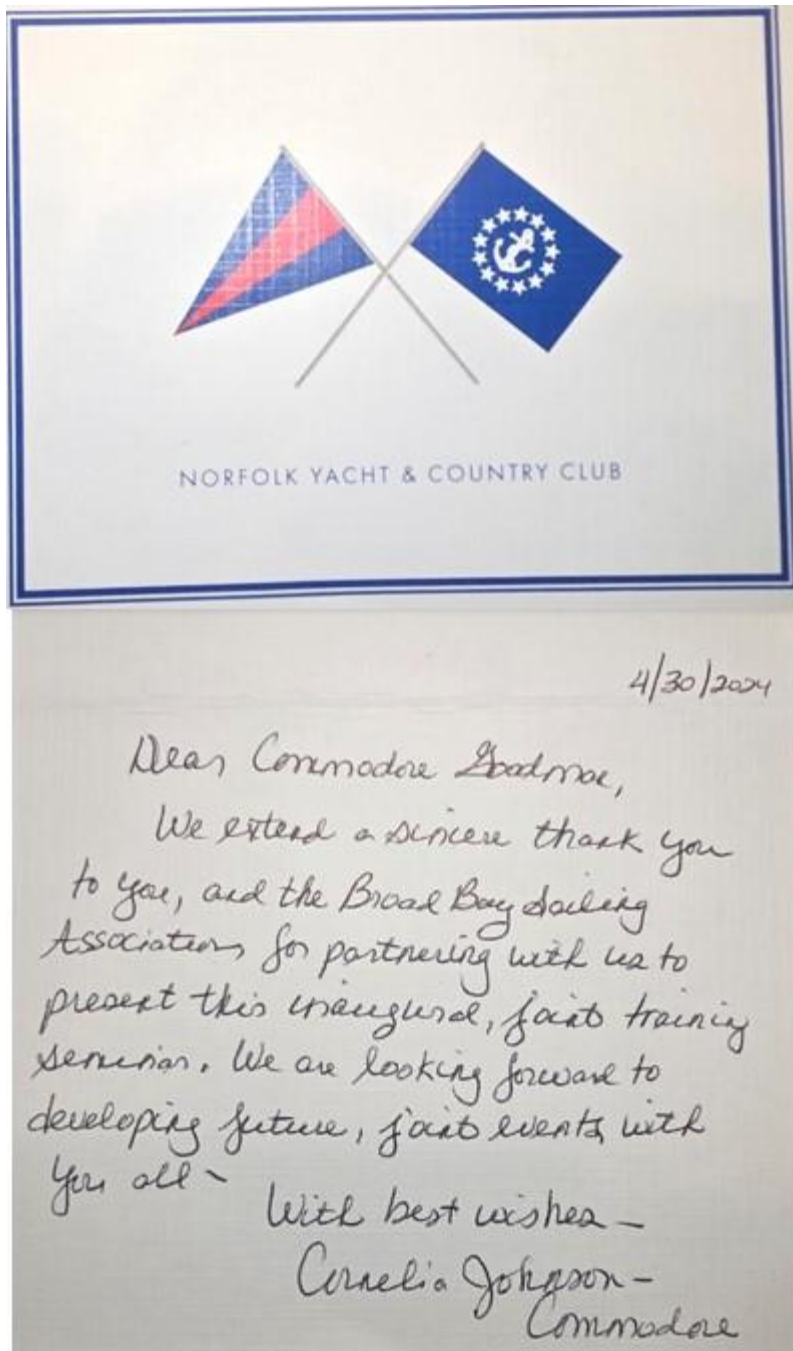 NORFOLK YACHT & COUNTRY CLUB
4/30/2024
Dear Commodore
We extend a sincere thank you
to you, and the Broad Bay Sailing
Association for partnering with us to
present this inaugural, joint training
seminar. We are looking forward to
developing future, joint events with
you all ~
With best wishes —
Cornelia Johnson —
Commodore